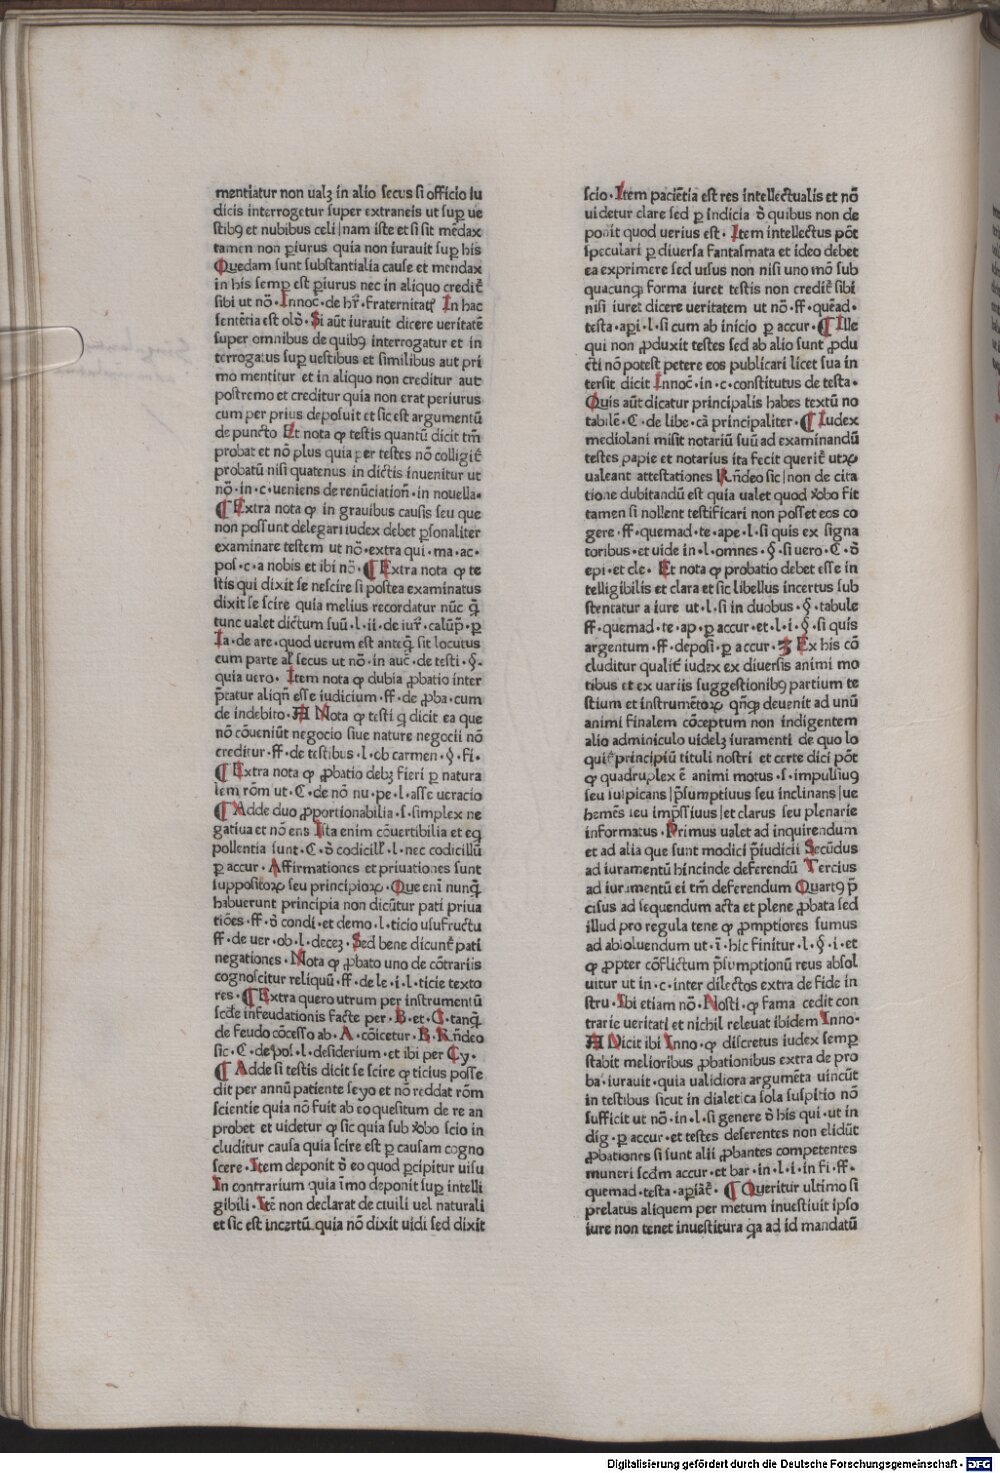 mentiatur non ualꝫ in alio secus si officio iu
dicis interrogetur super extraneis ut suꝑ ue
stibꝯ et nubibus celi|nam iste et si sit mēdax
tamen non ꝑiurus quia non iurauit suꝑ his
Quedam sunt substantialia cause et mendax
in his semꝑ est ꝑiurus nec in aliquo credit᷑
sibi ut nō·Innoc·de hr̄·fraternitatꝭ In hac
sentētia est olō·Si aūt iurauit dicere ueritatē
super omnibus de quibꝯ interrogatur et in
terrogatus suꝑ uestibus et similibus aut pri
mo mentitur et in aliquo non creditur aut
postremo et creditur quia non erat periurus
cum per prius deposuit et sic est argumentū
de puncto Et nota ꝙ testis quantū dicit tm̄
probat et nō plus quia per testes nō colligit᷑
probatū nisi quatenus in dictis inuenitur ut
nō·in·c·ueniens de renūciation̄·in nouella·
¶Extra nota ꝙ in grauibus causis seu que
non possunt delegari iudex debet ꝑsonaliter
examinare testem ut nō·extra qui·ma·ac·
pos·c·a nobis et ibi nō·¶Extra nota ꝙ te
stis qui dixit se nescire si postea examinatus
dixit se scire quia melius recordatur nūc q̄
tunc ualet dictum suū·l·ii·de iur̄·calūp̄·ꝑ
Ia·de are·quod uerum est anteq̄ sit locutus
cum parte al̄ secus ut nō·in auc̄·de testi·§·
quia uero·Item nota ꝙ dubia ꝓbatio inter
p̄tatur aliqn̄ esse iudicium·ff·de ꝓba·cum
de indebito·A Nota ꝙ testi q̄ dicit ea que
nō cōueniūt negocio siue nature negocii nō
creditur·ff·de testibus·l·ob carmen·§·fi·
¶Extra nota ꝙ ꝓbatio debꝫ fieri ꝑ natura
lem rōm ut·C·de nō nu·pe·l·asse ueracio
¶Adde duo ꝓportionabilia·s·simplex ne
gatiua et nō ens Ista enim cōuertibilia et eq̄
pollentia sunt·C·ō codicill̄·l·nec codicillū
ꝑ accur·Affirmationes et priuationes sunt
suppositoꝝ seu principioꝝ·Que eni nunq̄
habuerunt principia non dicūtur pati priua
tiōes·ff·ō condi·et demo·l·ticio usufructu
ff·de uer·ob·l·decez·Sed bene dicunt᷑ pati
negationes·Nota ꝙ ꝓbato uno de cōtrariis
cognoscitur reliquū·ff·de le·i·l·ticie texto
res·¶Extra quero utrum per instrumentū
scd̄e infeudationis facte per·B·et·C·tanq̄
de feudo cōcesso ab·A·cōicetur·B·Rn̄deo
sic·C·de pos·l·desiderium·et ibi per Cy·
¶Adde si testis dicit se scire ꝙ ticius posse
dit per annū patiente seyo et nō reddat rōm
scientie quia nō fuit ab eo quesitum de re an
probet et uidetur ꝙ sic quia sub ẋbo scio in
cluditur causa quia scire est ꝑ causam cogno
scere·Item deponit ō eo quod ꝑcipitur uisu
In contrarium quia īmo deponit suꝑ intelli
gibili·Itē non declarat de ciuili uel naturali
et sic est incertū quia nō dixit uidi sed dixit
scio·Item paciētia est res intellectualis et nō
uidetur clare sed ꝑ indicia ō quibus non de
ponit quod uerius est·Item intellectus pōt
speculari ꝑ diuersa fantasmata et ideo debet
ea exprimere sed uisus non nisi uno mō sub
quacunqꝫ forma iuret testis non credit᷑ sibi
nisi iuret dicere ueritatem ut nō·ff·quēad·
testa·aꝑi·l·si cum ab inicio ꝑ accur·¶Ille
qui non ꝓduxit testes sed ab alio sunt ꝓdu
cti nō potest petere eos publicari licet sua in
tersit dicit Innoc̄·in·c·constitutus de testa·
Quis aūt dicatur principalis habes textū no
tabilē·C·de libe·cā principaliter·¶Iudex
mediolani misit notariū suū ad examinandū
testes papie et notarius ita fecit querit᷑ utꝝ
ualeant attestationes Rn̄deo sic|non de cita
tione dubitandū est quia ualet quod ẋbo fit
tamen si nollent testificari non posset eos co
gere·ff·quemad·te·ape·l·si quis ex signa
toribus·et uide in·l·omnes·§·si uero·C·ō
epi·et cle·Et nota ꝙ probatio debet esse in
telligibilis et clara et sic libellus incertus sub
stentatur a iure ut·l·si in duobus·§·tabule
ff·quemad·te·ap·ꝑ accur·et·l·i·§·si quis
argentum·ff·deposi·ꝑ accur·Ʒ Ex his cō
cluditur qualit᷑ iudex ex diuersis animi mo
tibus et ex uariis suggestionibꝯ partium te
stium et instrumētoꝝ qn̄qꝫ deuenit ad unū
animi finalem cōceptum non indigentem
alio adminiculo uidelꝫ iuramenti de quo lo
quit᷑ principiū tituli nostri et certe dici pōt
ꝙ quadruplex ē animi motus·s·impulsiuꝯ
seu uulpicans|p̄sumptiuus seu inclinans|ue
hemēs seu imp̄ssiuus|et clarus seu plenarie
informatus·Primus ualet ad inquirendum
et ad alia que sunt modici p̄iudicii Secūdus
ad iuramentū hincinde deferendū Tercius
ad iuramentū ei tm̄ deferendum Quartꝯ p̄
cisus ad sequendum acta et plene ꝓbata sed
illud pro regula tene ꝙ ꝓmptiores sumus
ad absoluendum ut·ī·hic finitur·l·§·i·et
ꝙ ꝓpter cōflictum p̄sumptionū reus absol
uitur ut in·c·inter dilectos extra de fide in
stru·Ibi etiam nō·Nosti·ꝙ fama cedit con
trarie ueritati et nichil releuat ibidem Inno·
A Dicit ibi Inno·ꝙ discretus iudex semꝑ
stabit melioribus ꝓbationibus extra de pro
ba·iurauit·quia ualidiora argumēta uincūt
in testibus sicut in dialetica sola suspitio nō
sufficit ut nō·in·l·si genere ō his qui·ut in
dig·ꝑ accur·et testes deferentes non elidūt
ꝓbationes si sunt alii ꝓbantes competentes
muneri scdm̄ accur·et bar·in·l·i·in fi·ff·
quemad·testa·aꝑiāt᷑·¶Queritur ultimo si
prelatus aliquem per metum inuestiuit ipso
iure non tenet inuestitura q̄a ad id mandatū
Digitalisierung gefördert durch die Deutsche Forschungsgemeinschaft - DFG